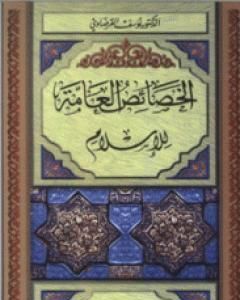 الدكتور يوسف القرضاوي
الخصائص العامة
للإسلام